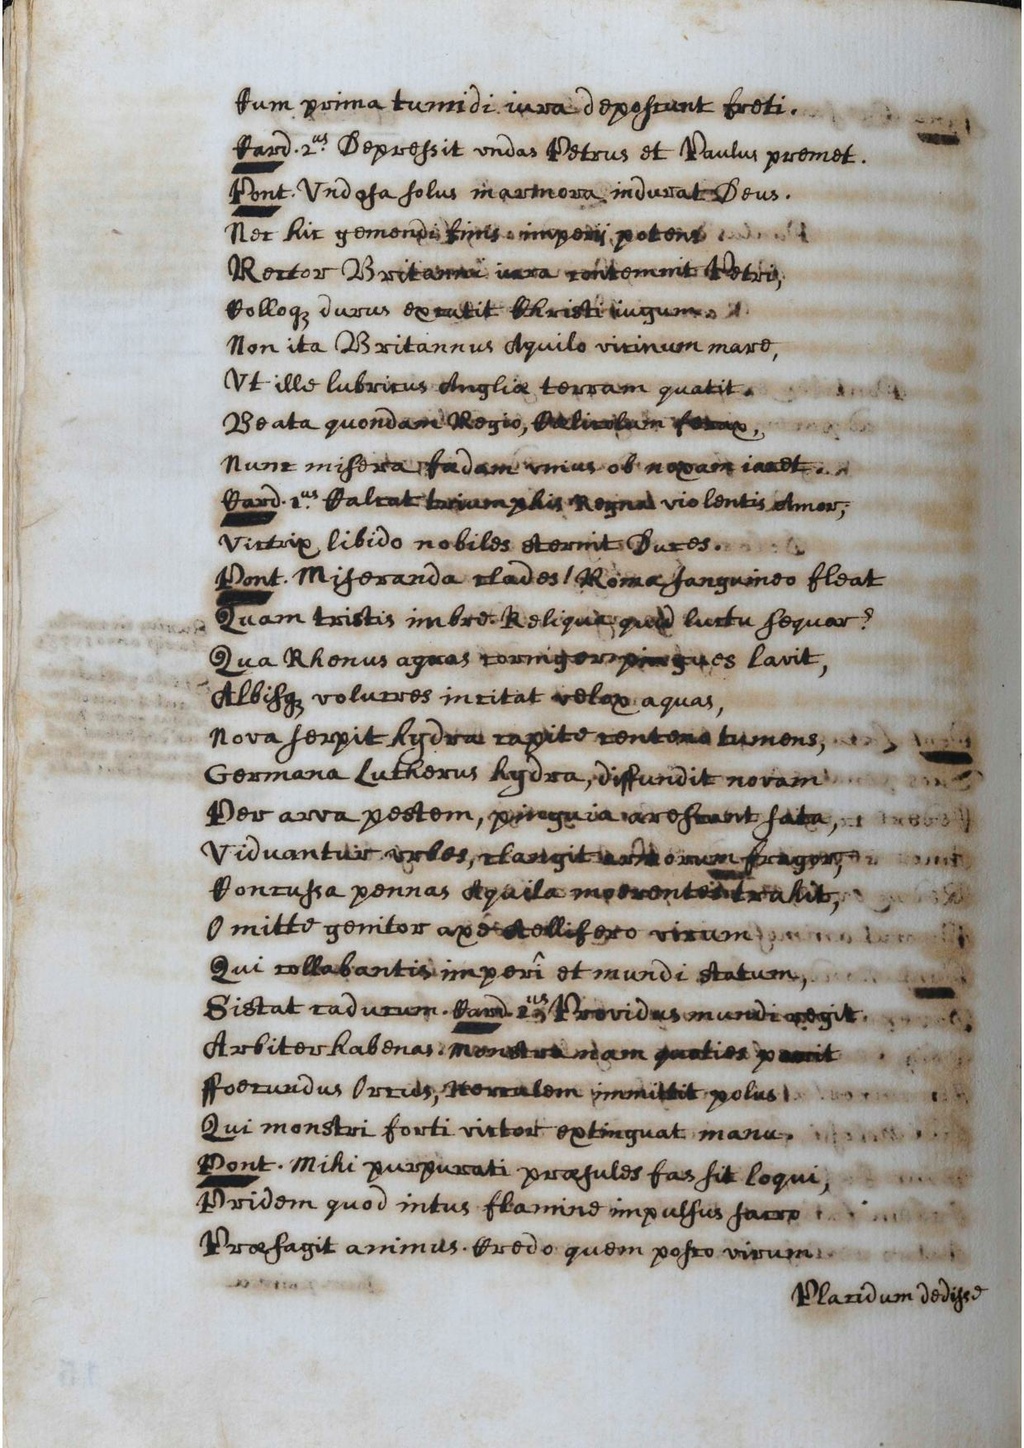 Cum prima tumidi iura deposcunt freti.
Card. 2.us Depressit vndas Petrus et Paulus premet.
Pont. Vndosa solus marmora indurat Deus.
Nec hic gemendi finis imperij potens
Rector Britanni iura contemnit Petri,
Colloq; durus excutit Christi iugum.
Non ita Britannus Aquilo vicinum mare,
Vt ille lubricus Angliæ terram quatit.
Beata quondam Regio, Cœlicolum ferax,
Nunc misera fœdam vnius ob noxam iacet.
Card. 1.us Calcat triumphis Regna violentis Amor,
Victrix libido nobiles sternit Duces.
Pont. Miseranda clades! Roma sanguineo fleat
Quam tristis imbre. Reliqua quid luctu sequar?
Qua Rhenus aquas corniger pingues lavit,
Albisq; volucres incitat velox aquas,
Nova serpit hydra capite centeno tumens,
Germana Lutherus hydra, diffundit novam
Per arva pestem, pinguia arescunt sata,
Viduantur vrbes, clangit armorum fragor,
Concussa pennas Aquila moerentes trahit,
Omitte genitor axe stellifero virum
Qui collabantis imperî et mundi statum,
Sistat caducum. Card. 1.us Providus mundi regit
Arbiter habenas. Monstra nam quoties parit
ffoecundus Orcus, Herculem immittit polus
Qui monstri forti victor extinguat manu.
Pont. Mihi purpurati præsules fas sit loqui,
Pridem quod intus flamine impulsus sacro
Præsagit animus. Credo quem posco virum
Placidum dedisse